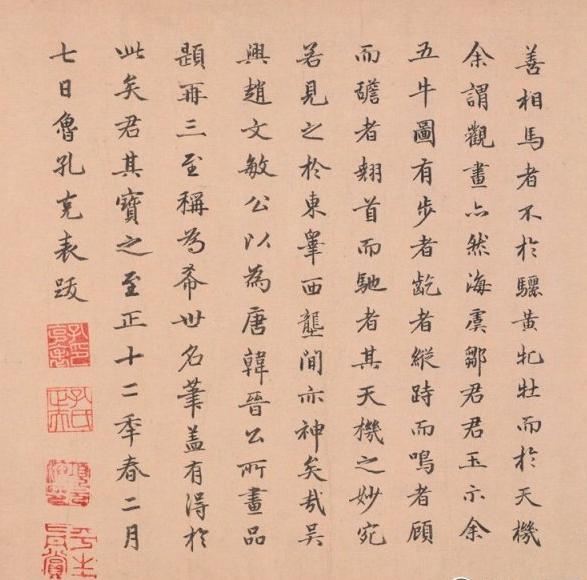 善相馬者不於驪黄牝牡而於天機
余謂觀畫亦然海虞鄒君君玉示余
五牛圖有步者齕者縱跱而鳴者顧
而䑛者翹首而馳者其天機之妙宛
若見之於東睾西壟間亦神矣哉吴
興趙文敏公以為唐韓晉公所畫品
題再三至稱為希世名筆盖有得於
此矣君其寶之至正十二季春二月
七日魯孔克表跋